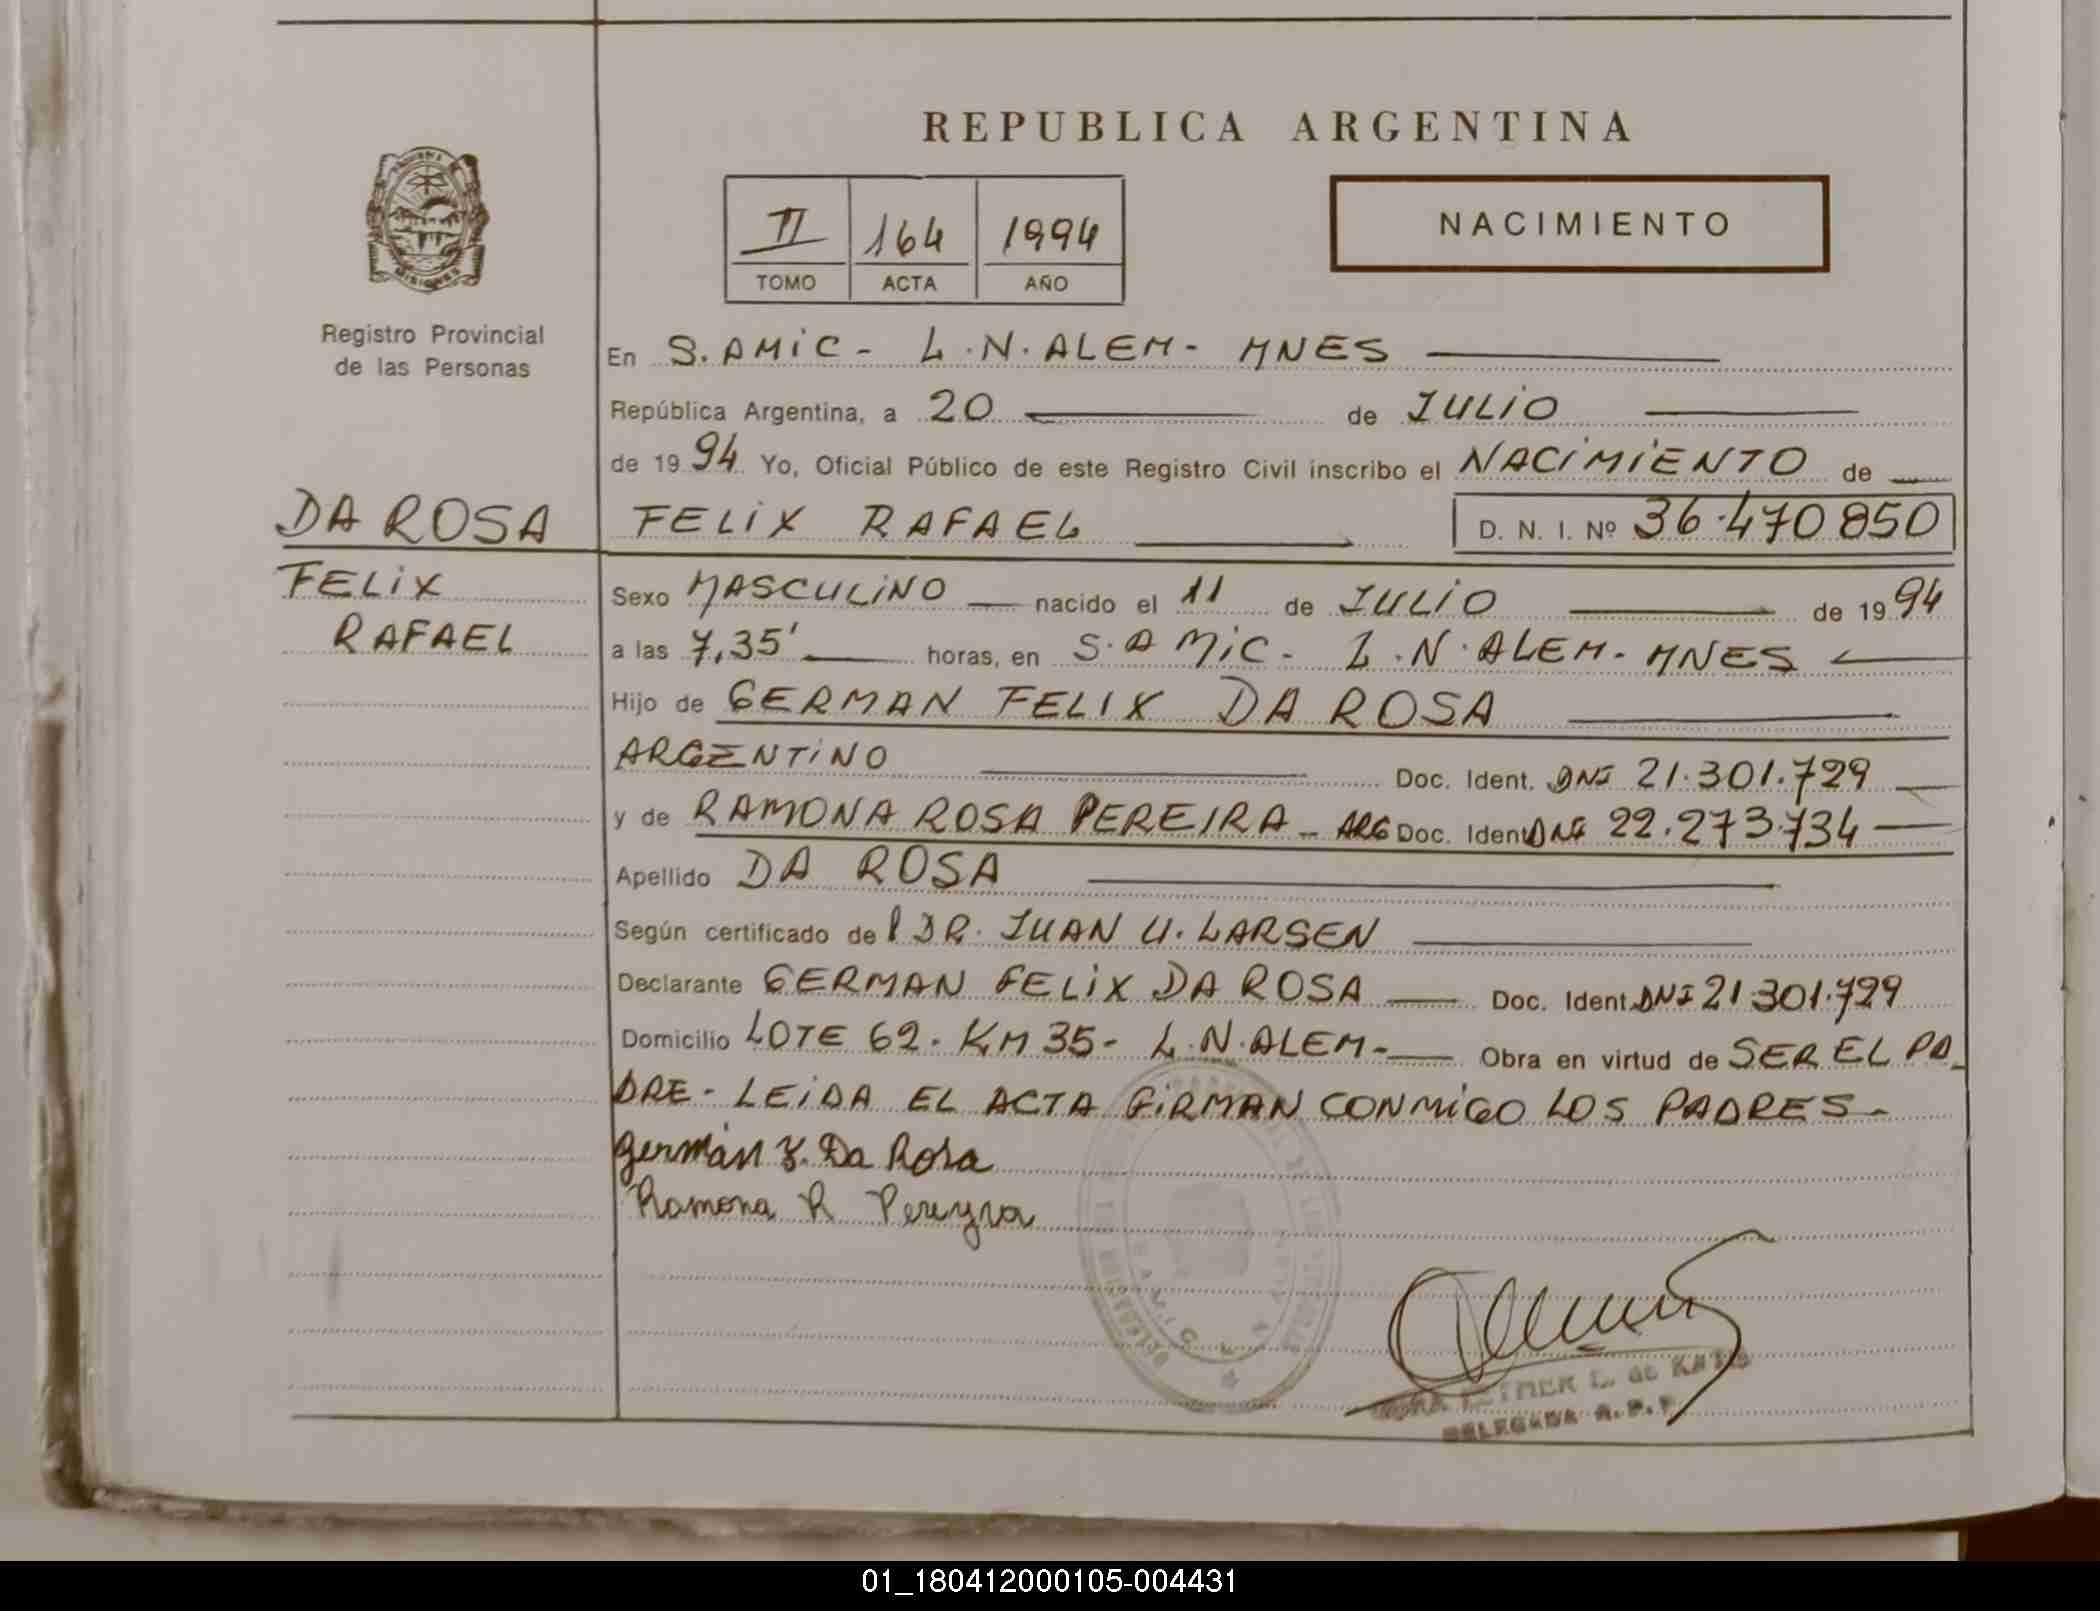 REPUBLICA ARGENTINA
II 164 1994
TOMO ACTA AÑO
NACIMIENTO
MISIONES
Registro Provincial
de las Personas
En S. AMIC - L.N. ALEM - MNES
República Argentina, a 20 de JULIO
de 19 94 Yo, Oficial Público de este Registro Civil inscribo el NACIMIENTO de
DA ROSA
FELIX
RAFAEL
FELIX RAFAEL D. N. I. Nº 36.470850
Sexo MASCULINO nacido el 11 de JULIO de 19 94
a las 7,35' horas, en S. AMIC - L.N. ALEM - MNES
Hijo de GERMAN FELIX DA ROSA
ARGENTINO Doc. Ident. DNI 21.301.729
y de RAMONA ROSA PEREIRA - ARG Doc. Ident DNI 22.273.734
Apellido DA ROSA
Según certificado de l DR. JUAN U. LARSEN
Declarante GERMAN FELIX DA ROSA Doc. Ident. DNI 21.301.729
Domicilio LOTE 62 - KM 35 - L.N. ALEM - Obra en virtud de SER EL PA-
DRE - LEIDA EL ACTA FIRMAN CONMIGO LOS PADRES -
Germán F. Da Rosa
Ramona R Pereyra
DELEGADA R.P.P.
01_180412000105-004431